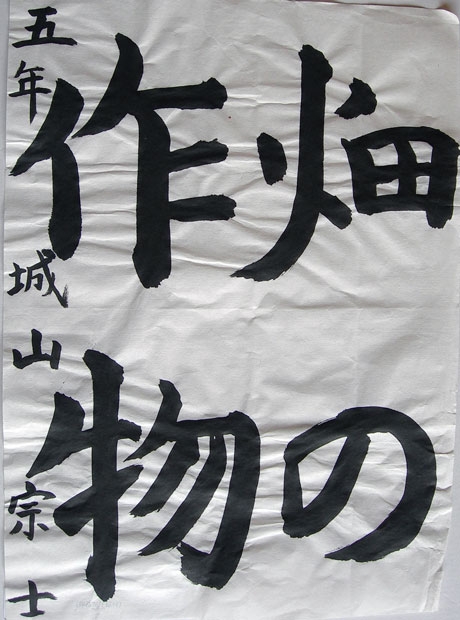 畑の
作物
五年城山宗士